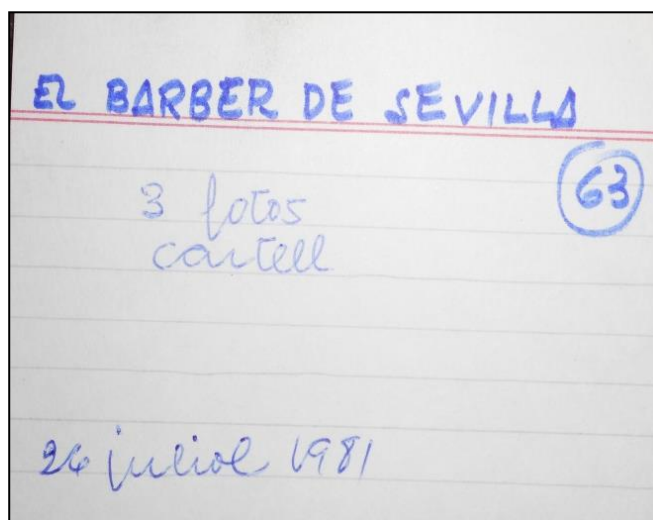 EL BARBER DE SEVILLA
63
3 fotos
cartell
26 juliol 1981